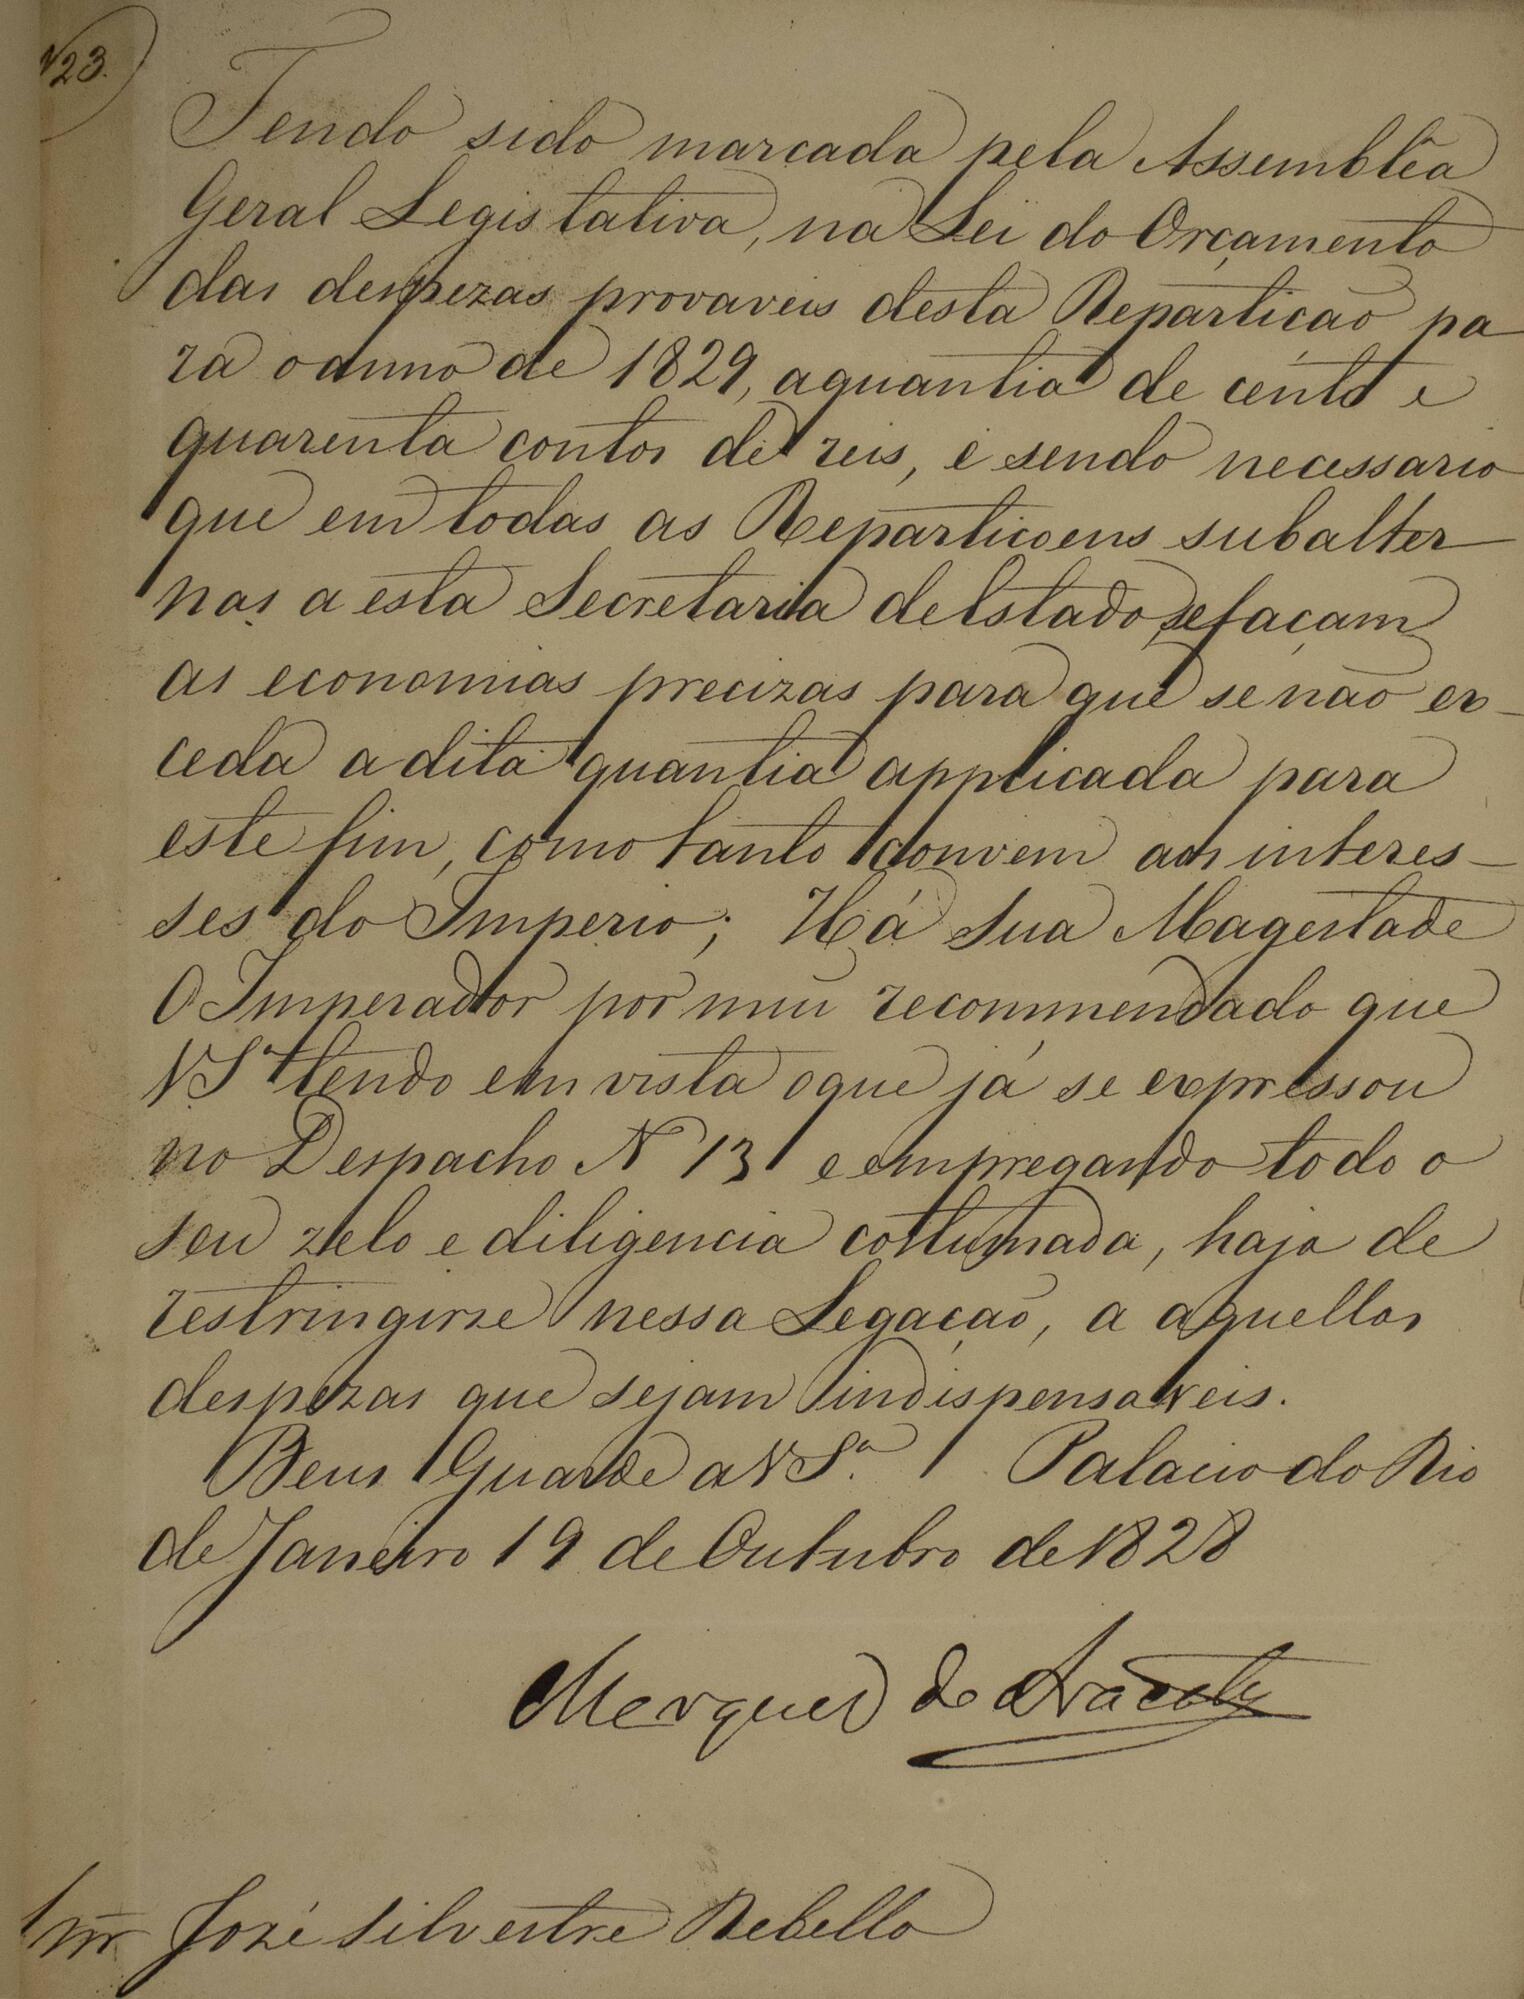 N 23.
Tendo sido marcada pela Assemblêa
Geral Legislativa, na Lei do Orçamento
das despezas provaveis desta Repartição pa
ra o anno de 1829, a quantia de cento e
quarenta contos de reis, e sendo necessario
que em todas as Repartiçoens subalter
nas a esta Secretaria de Estado se façam
as economias precizas para que se não ex-
ceda a dita quantia applicada para
este fim, como tanto convem aos interes-
ses do Imperio; Há Sua Magestade
O Imperador por mui recommendado que
V Sª tendo em vista o que já se expressou
no Despacho N 13 e empregando todo o
seu zelo e diligencia costumada, haja de
restringirse nessa Legação, a aquellas
despezas que sejam indispensaveis.
Deus Guarde a V Sª. Palacio do Rio
de Janeiro 19 de Outubro de 1828
Marquez de Aracaty
Snr José Silvestre Rebello